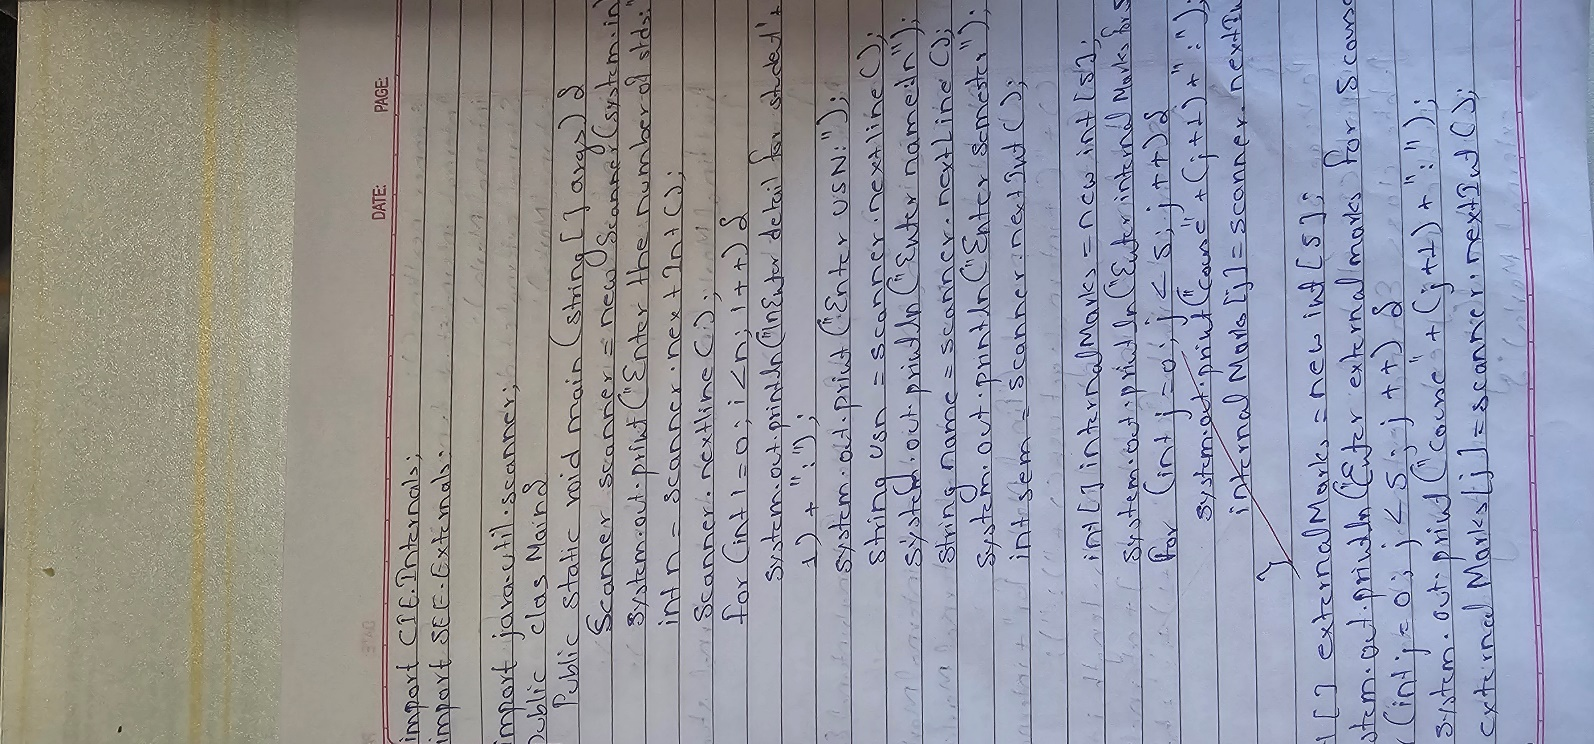 DATE: PAGE:
import CIE.Internals;
import SEE.Externals;
import java.util.scanner;
Public clas Main {
Public static void main (string [] args) {
Scanner scanner = new Scanner (system.in
system.out.print ("Enter the number of stds:"
int n = scanner.next Int ();
Scanner.nextline ();
for (int i = 0; i < n; i++) {
system.out.println ("\nEnter detail for student's
1) + ":");
system.out.print ("Enter USN:");
String usn = scanner.nextline ();
system.out.println ("Enter name:\n");
String name = scanner.nextLine ();
system.out.println ("Enter Semester");
int sem = scanner.next Int ();
int [] internalMarks = new int [5];
system.out.println ("Enter internal Marks for 5
for (int j = 0; j < 5; j++) {
system.out.print ("course" + (j+1) + ":");
internal Marks [j] = scanner.next In
}
[] externalMarks = new int [5];
stem.out.println ("Enter external marks for 5 course
(int j = 0; j < 5; j++) {
system.out.print ("course" + (j+1) + ":");
external Marks [j] = scanner.next Int ();